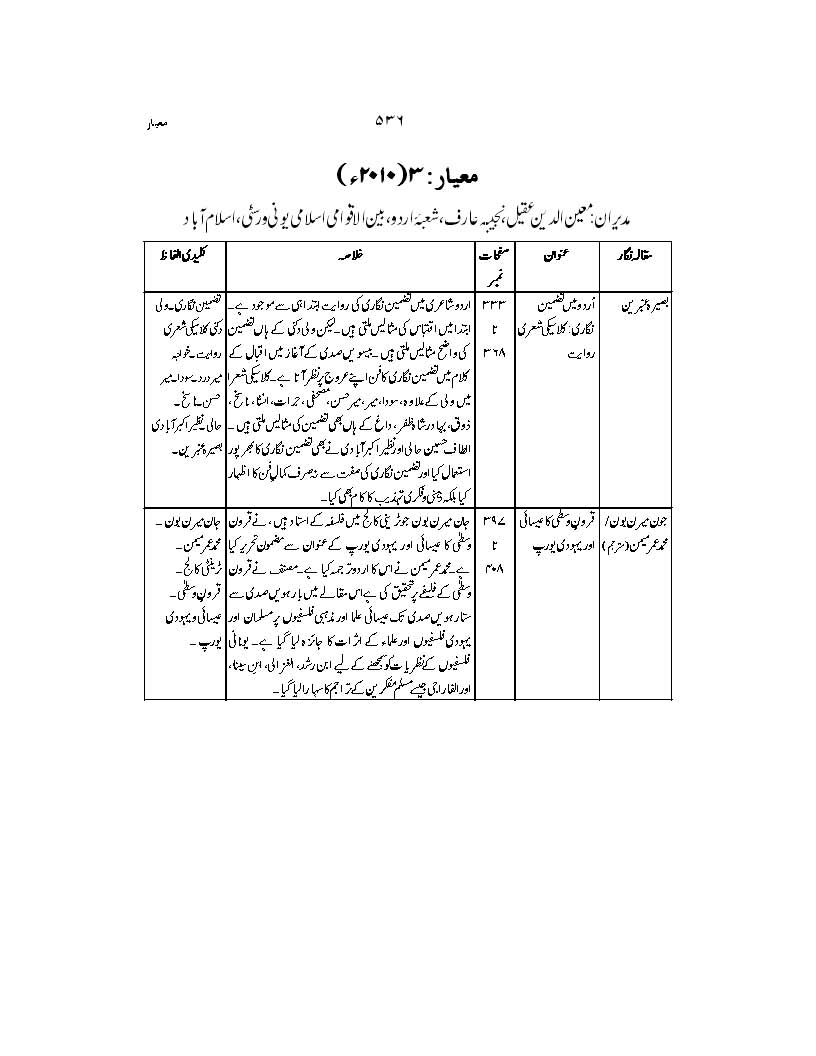 معیار
۵۳۶
معیار: ۳(۲۰۱۰ء)
مدیران: معین الدین عقیل، نجیبہ عارف، شعبۂ اردو، بین الاقوامی اسلامی یونی ورسٹی، اسلام آباد
مقالہ نگار
عنوان
صفحات
نمبر
خلاصہ
کلیدی الفاظ
بصیرہ عنبرین
اُردو میں تضمین
نگاری: کلاسیکی شعری
روایت
۳۳۳
تا
۳۶۸
اردو شاعری میں تضمین نگاری کی روایت ابتدا ہی سے موجود ہے۔
ابتدا میں اقتباس کی مثالیں ملتی ہیں۔ لیکن ولی دکنی کے ہاں تضمین
کی واضح مثالیں ملتی ہیں۔ بیسویں صدی کے آغاز میں اقبال کے
کلام میں تضمین نگاری کا فن اپنے عروج پر نظر آتا ہے۔ کلاسیکی شعرا
میں ولی کے علاوہ، سودا، میر، میر حسن، مصحفی، جرات، انشا، ناسخ،
ذوق، بہادر شاہ ظفر، داغ کے ہاں بھی تضمین کی مثالیں ملتی ہیں۔
الطاف حسین حالی اور نظیر اکبر آبادی نے بھی تضمین نگاری کا بھرپور
استعمال کیا اور تضمین نگاری کی صفت سے نہ صرف کمالِ فن کا اظہار
کیا بلکہ ذہنی و فکری تہذیب کا کام بھی کیا۔
تضمین نگاری۔ ولی
دکنی کلاسیکی شعری
روایت۔ خواجہ
میر درد۔ سودا۔ میر
حسن۔ ناسخ۔
حالی۔ نظیر اکبر آبادی
بصیرہ عنبرین۔
جون میرن بون/
محمد عمر میمن (مترجم)
قرونِ وسطٰی کا عیسائی
اور یہودی یورپ
۳۹۷
تا
۴۰۸
جان میرن بون جو ٹرینی کالج میں فلسفہ کے استاد ہیں، نے قرون
وسطٰی کا عیسائی اور یہودی یورپ کے عنوان سے مضمون تحریر کیا
ہے۔ محمد عمر میمن نے اس کا اردو ترجمہ کیا ہے۔ مصنف نے قرون
وسطٰی کے فلسفے پر تحقیق کی ہے اس مقالے میں بارہویں صدی سے
ستارہویں صدی تک عیسائی علما اور مذہبی فلسفیوں پر مسلمان اور
یہودی فلسفیوں اور علماء کے اثرات کا جائزہ لیا گیا ہے۔ یونانی
فلسفیوں کے نظریات کو سمجھنے کے لیے ابن رشد، الغزالی، ابن سینا،
اور الفارابی جیسے مسلم مفکرین کے تراجم کا سہارا لیا گیا۔
جان میرن بون۔
محمد عمر میمن۔
ٹرینٹی کالج۔
قرونِ وسطٰی۔
عیسائی و یہودی
یورپ۔